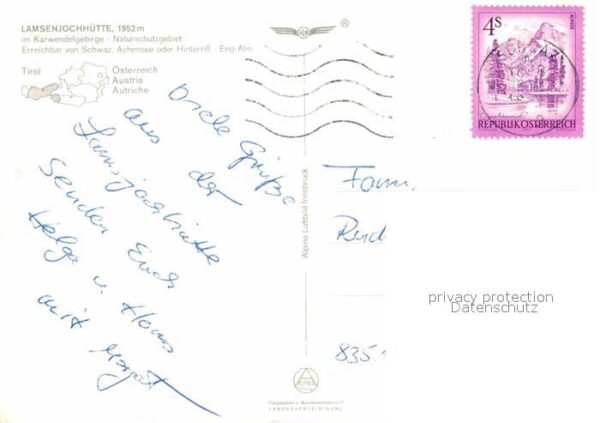 LAMSENJOCHHÜTTE, 1952 m
im Karwendelgebirge - Naturschutzgebiet
Erreichbar von Schwaz, Achensee oder Hinterriß - Eng-Alm
Tirol
Österreich
Austria
Autriche
®
4S
REPUBLIK ÖSTERREICH
Viele Grüße
aus der
Lamsjochhütte
senden Euch
Helga u. Hans
mit Margot
Alpine Luftbild Innsbruck
Fam.
835
privacy protection
Datenschutz
LANDESVERTEIDIGUNG